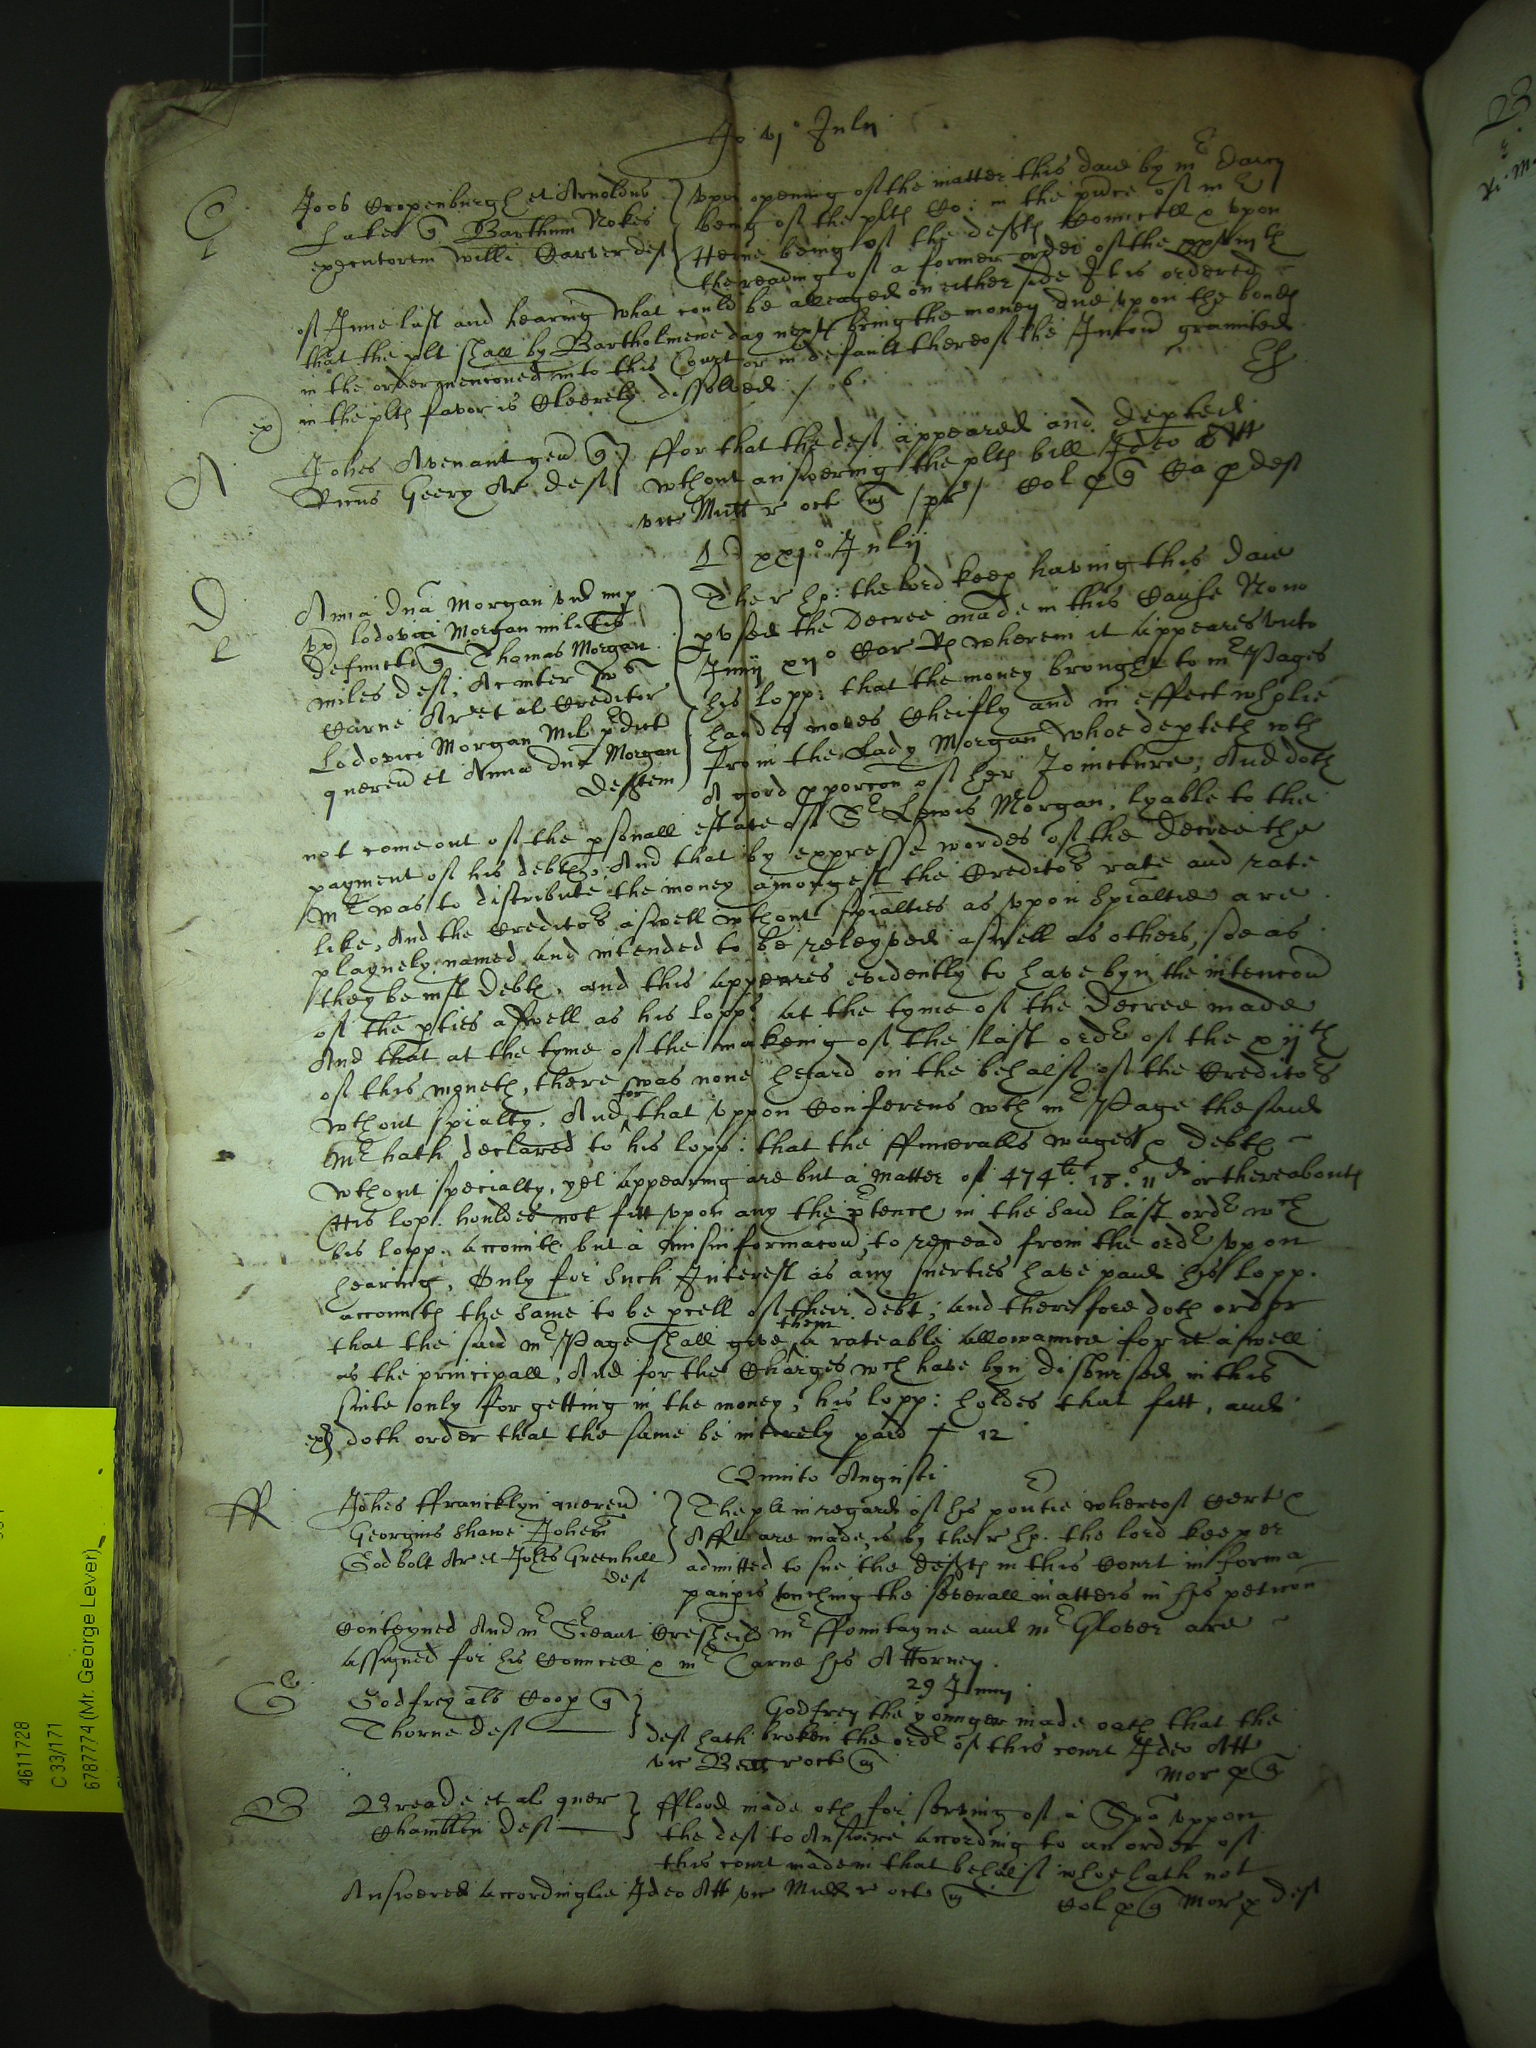 Jo vj° Julij
C
Joos Cropenburgh et Arnoldus
Lakes q Barthum Nokes
executorem Willi Carver deft
Upon opening of the matter this daie by mr Darcy
being of the plts Co: in the pnce of mr
Herne being of the defts Councell & upon
the reading of a former order of the
of June last and hearing what could be alleaged on either side It is ordered
that the plt shall by Bartholmewe day next bring the money due upon the bonds
in the order menconed into this Court or in default thereof the Iniuncon graunted
in the plts favor is Cleerely dissolved
ex
A
Johes Avenant gen q
Geery Ar deft
ffor that the deft appeared and depted
wthout answering the plts bill Ideo Att
vic Midd r oct Col p q Ca p deft
xxj° Julij
D
L
Anna dna Morgan vid nup
ux lodovici Morgan militis
defuncti q Thomas Morgan
miles deft; Ac inter
Carne Ar et al Creditor
Lodovici Morgan Mil pdict
queren et Anna dna Morgan
defftem
The r hp: the lord keep having this daie
pused the Decree made in this Cause Nono
Junij xij° Car Rs wherein it appeares unto
his lopp: that the money brought to mr Pages
handes moves Cheifly and in effect wholie
from the Lady Morgan whoe depteth wth
A good pporcon of her Joincture; And doth
not come out of the psonall estate of Sr Lewis Morgan, lyable to the
payment of his debts, And that by expresse wordes of the Decree the
Mr was to distribute the money amongest the Creditors rate and rate
like, And the Creditors aswell wthout spialties as upon Spialtie are
playnely named and intended to be releyved aswell as others, soe as
they be iust Debts, and this appeares evidently to have byn the intencon
of the pties aswell as his lopps at the tyme of the Decree made
And that at the tyme of the makeing of the last ordr of the xijth
of this moneth, there was none heard on the behalf of the Creditors
wthout spialty, And for that uppon Conferens wth mr Page the said
Mr hath declared to his lopp: that the ffuneralls wages & Debts
wthout specialty, yet appearing are but a matter of 474li 18s 11d or thereabouts
His lop: houldes not fitt upon any the ptences in the said last ordr wch
his lopp: accompts but a misinformacon, to recead from the ordr upon
hearing, Only for such Interest as any suerties have paid his lopp.
accompts the same to be pcell of their debt; and therefore doth order
that the said mr Page shall give them a rateable allowannce for it aswell
as the principall, And for the Charges wch have byn disbursed in this
suite only for getting in the money, his lopp: holdes that fitt, and
ex doth order that the same be intirely paid 12
Quinto Augusti
ff
Johes ffrancklyn queren
Georgius Shawe Johem
Godbolt Ar et Johes Greenhill
deft
The plt in regard of his povtie whereof Cert &
Afft are made, is by the r hp. the lord keeper
admitted to sue the defts in this Court in forma
paupis touching the severall matters in his peticon
Conteyned And mr Sreant Cresheild mr ffountayne and mr Glover are
Assigned for his Councell & mr Carne his Attorney.
29 Junij
G
Godfrey als Coop q
Thorne deft
Godfrey the younger made oath that the
deft hath broken the ordr of this court Ideo Att
vic r oct
Mor p q
B
Breade et al quer
Chamblen deft
fflood made oth for serving of a Spa uppon
the deft to Answere according to an order of
this court made in that behalf whoe hath not
Answered accordinglie Ideo Att vic Midd r oct
Col p q Mor p deft
4611728
C 33/171
6787774 (Mr. George Lever)